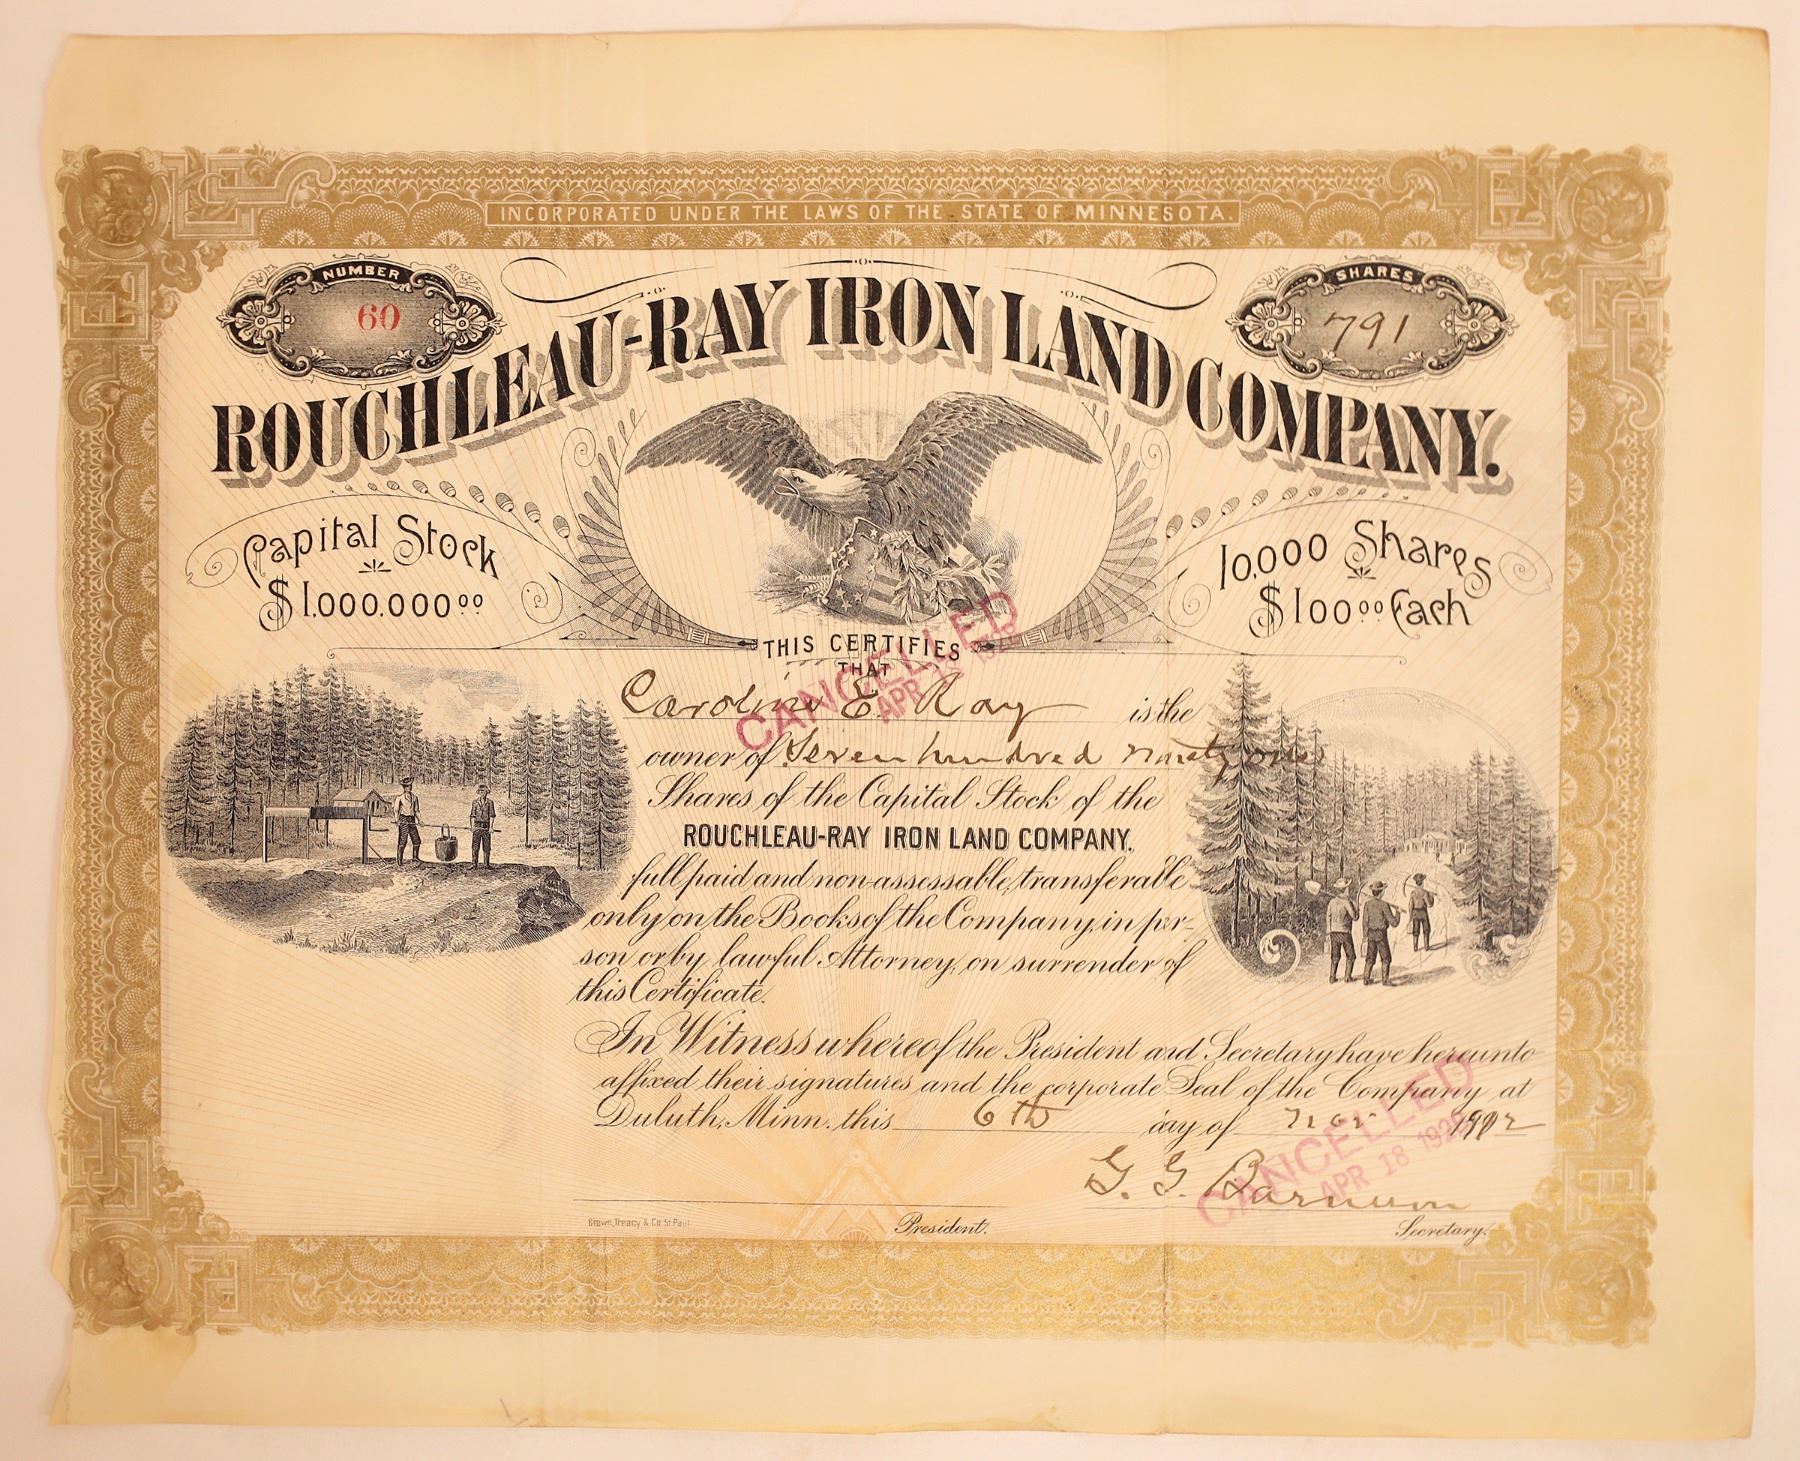 INCORPORATED UNDER THE LAWS OF THE STATE OF MINNESOTA.
NUMBER
60
SHARES
791
ROUCHLEAU-RAY IRON LAND COMPANY.
Capital Stock
$1.000.000 00
10,000 Shares
$100 00 Each
THIS CERTIFIES
THAT
Caroline E. Ray is the
owner of Seven hundred ninety one
Shares of the Capital Stock of the
ROUCHLEAU-RAY IRON LAND COMPANY.
full paid and non-assessable, transferable
only on the Books of the Company, in per-
son or by lawful Attorney, on surrender of
this Certificate.
In Witness whereof the President and Secretary have hereunto
affixed their signatures and the corporate Seal of the Company at
Duluth, Minn. this 6th day of Nov 1902
G. G. Barnum
Brown, Treacy & Co. St Paul
President.
Secretary.
CANCELLED
APR 18 1928
CANCELLED
APR 18 1928